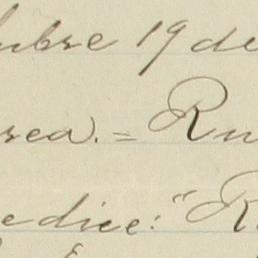 ubre 19 de
rea. = Ru
e dice: "R